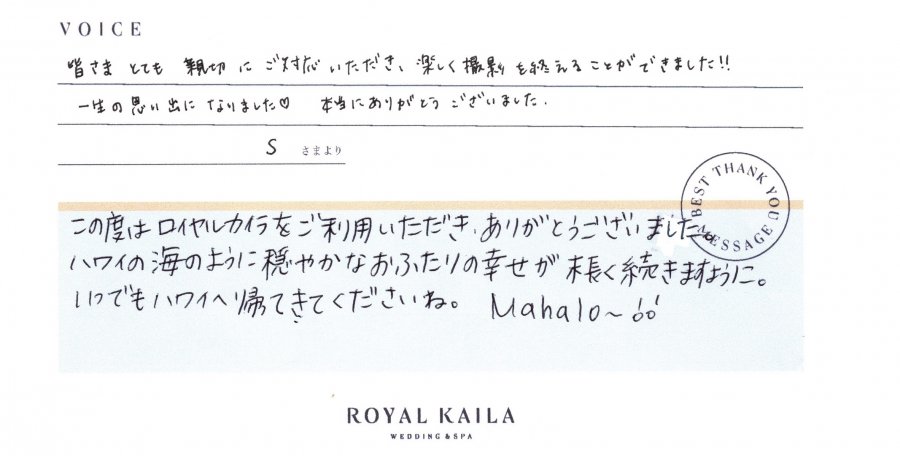 VOICE
皆さま とても 親切 に ご対応 いただき、楽しく 撮影 を終えることができました!!
一生の思い出になりました♡ 本当にありがとう ございました.
S さまより
BEST THANK YOU MESSAGE
この度はロイヤルカイラをご利用いただき、ありがとうございました。
ハワイの海のように穏やかなおふたりの幸せが長く続きますように。
いつでもハワイへ帰ってきてくださいね。 Mahalo~
ROYAL KAILA
WEDDING & SPA